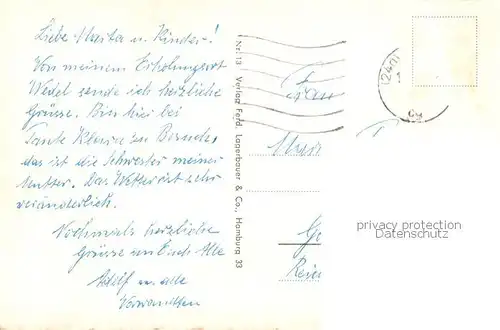 Liebe Marta u. Kinder!
Von meinem Erholungsort
Wedel sende ich herzliche
Grüsse. Bin hier bei
Tante Klara zu Besuch,
das ist die Schwester meiner
Mutter. Das Wetter ist sehr
veränderlich.
Nochmals herzliche
Grüsse an Euch Alle
Adolf u. alle
Verwandten
Nr. 13 Verlag Ferd. Lagerbauer & Co., Hamburg 33
(24a)
Frau
privacy protection
Datenschutz